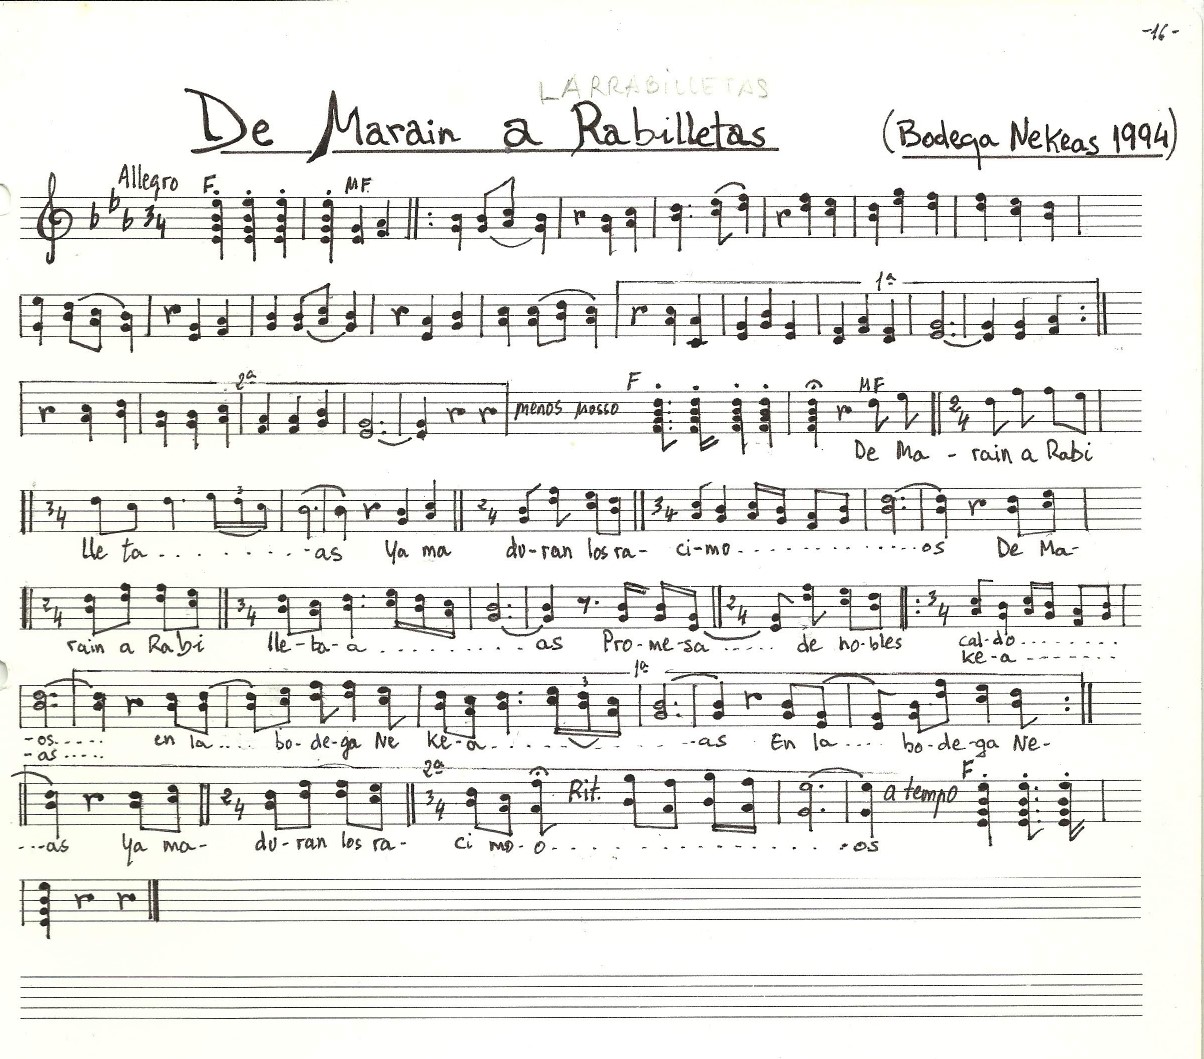 -16-
LARRABILLETAS
De Marain a Rabilletas (Bodega Nekeas 1994)
Allegro F. MF.
3/4
1ª
2ª menos mosso F MF
2/4
De Ma - rain a Rabi
3/4 3 2/4 3/4
lle ta . . . . . . . . -as Ya ma du-ran los ra- ci-mo . . . . . . . . . . . . . os De Ma-
2/4 3/4 2/4 3/4
rain a Rabi lle-ta-a . . . . . . . . . . as Pro-me-sa . . . . . de no-bles cal-do . . . . . . . .
ke-a - - - - - - -
1ª 3
-os. . . . . en la . . . bo-de-ga Ne ke-a . . . . . . . . . . . -as En la . . . . bo-de-ga Ne-
-as . . . .
2ª 2/4 3/4 Rit. a tempo F.
- - -as Ya ma- du-ran los ra- ci mo-o . . . . . . . . . . . . . . -os